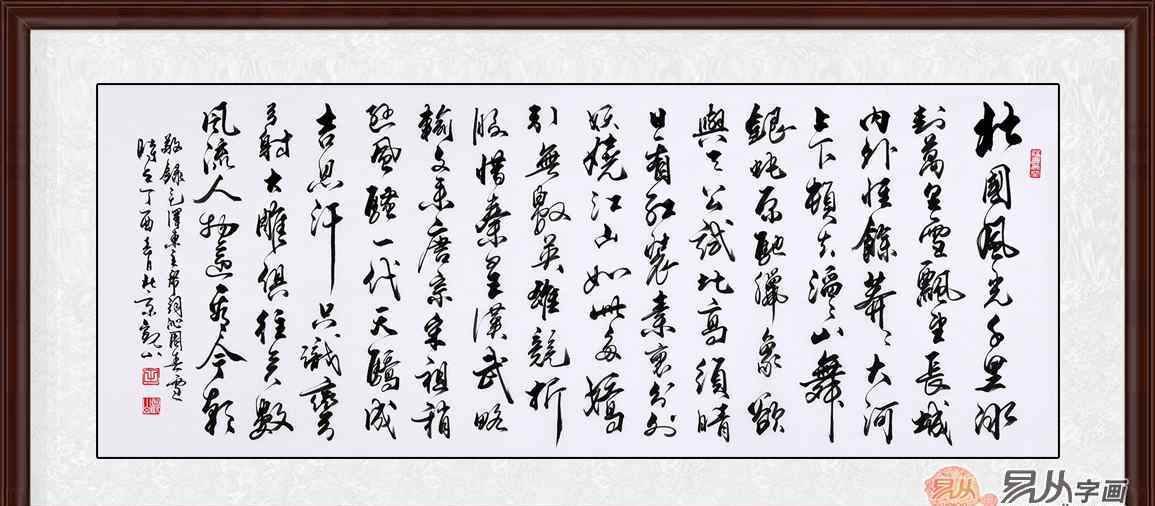 北國風光千里冰
封萬里雪飄望長城
內外惟餘莽々大河
上下頓失滔々山舞
銀蛇原馳臘象欲
與天公試比高須晴
日看紅裝素裹分外
妖嬈江山如此多嬌
引無數英雄競折
腰惜秦皇漢武略
輸文采唐宗宋祖稍
遜風騷一代天驕成
吉思汗只識彎
弓射大雕俱往矣數
風流人物還看今朝
敬錄毛澤東主席詞沁園春雪
時在丁酉春月於京觀山
易从
易从字画